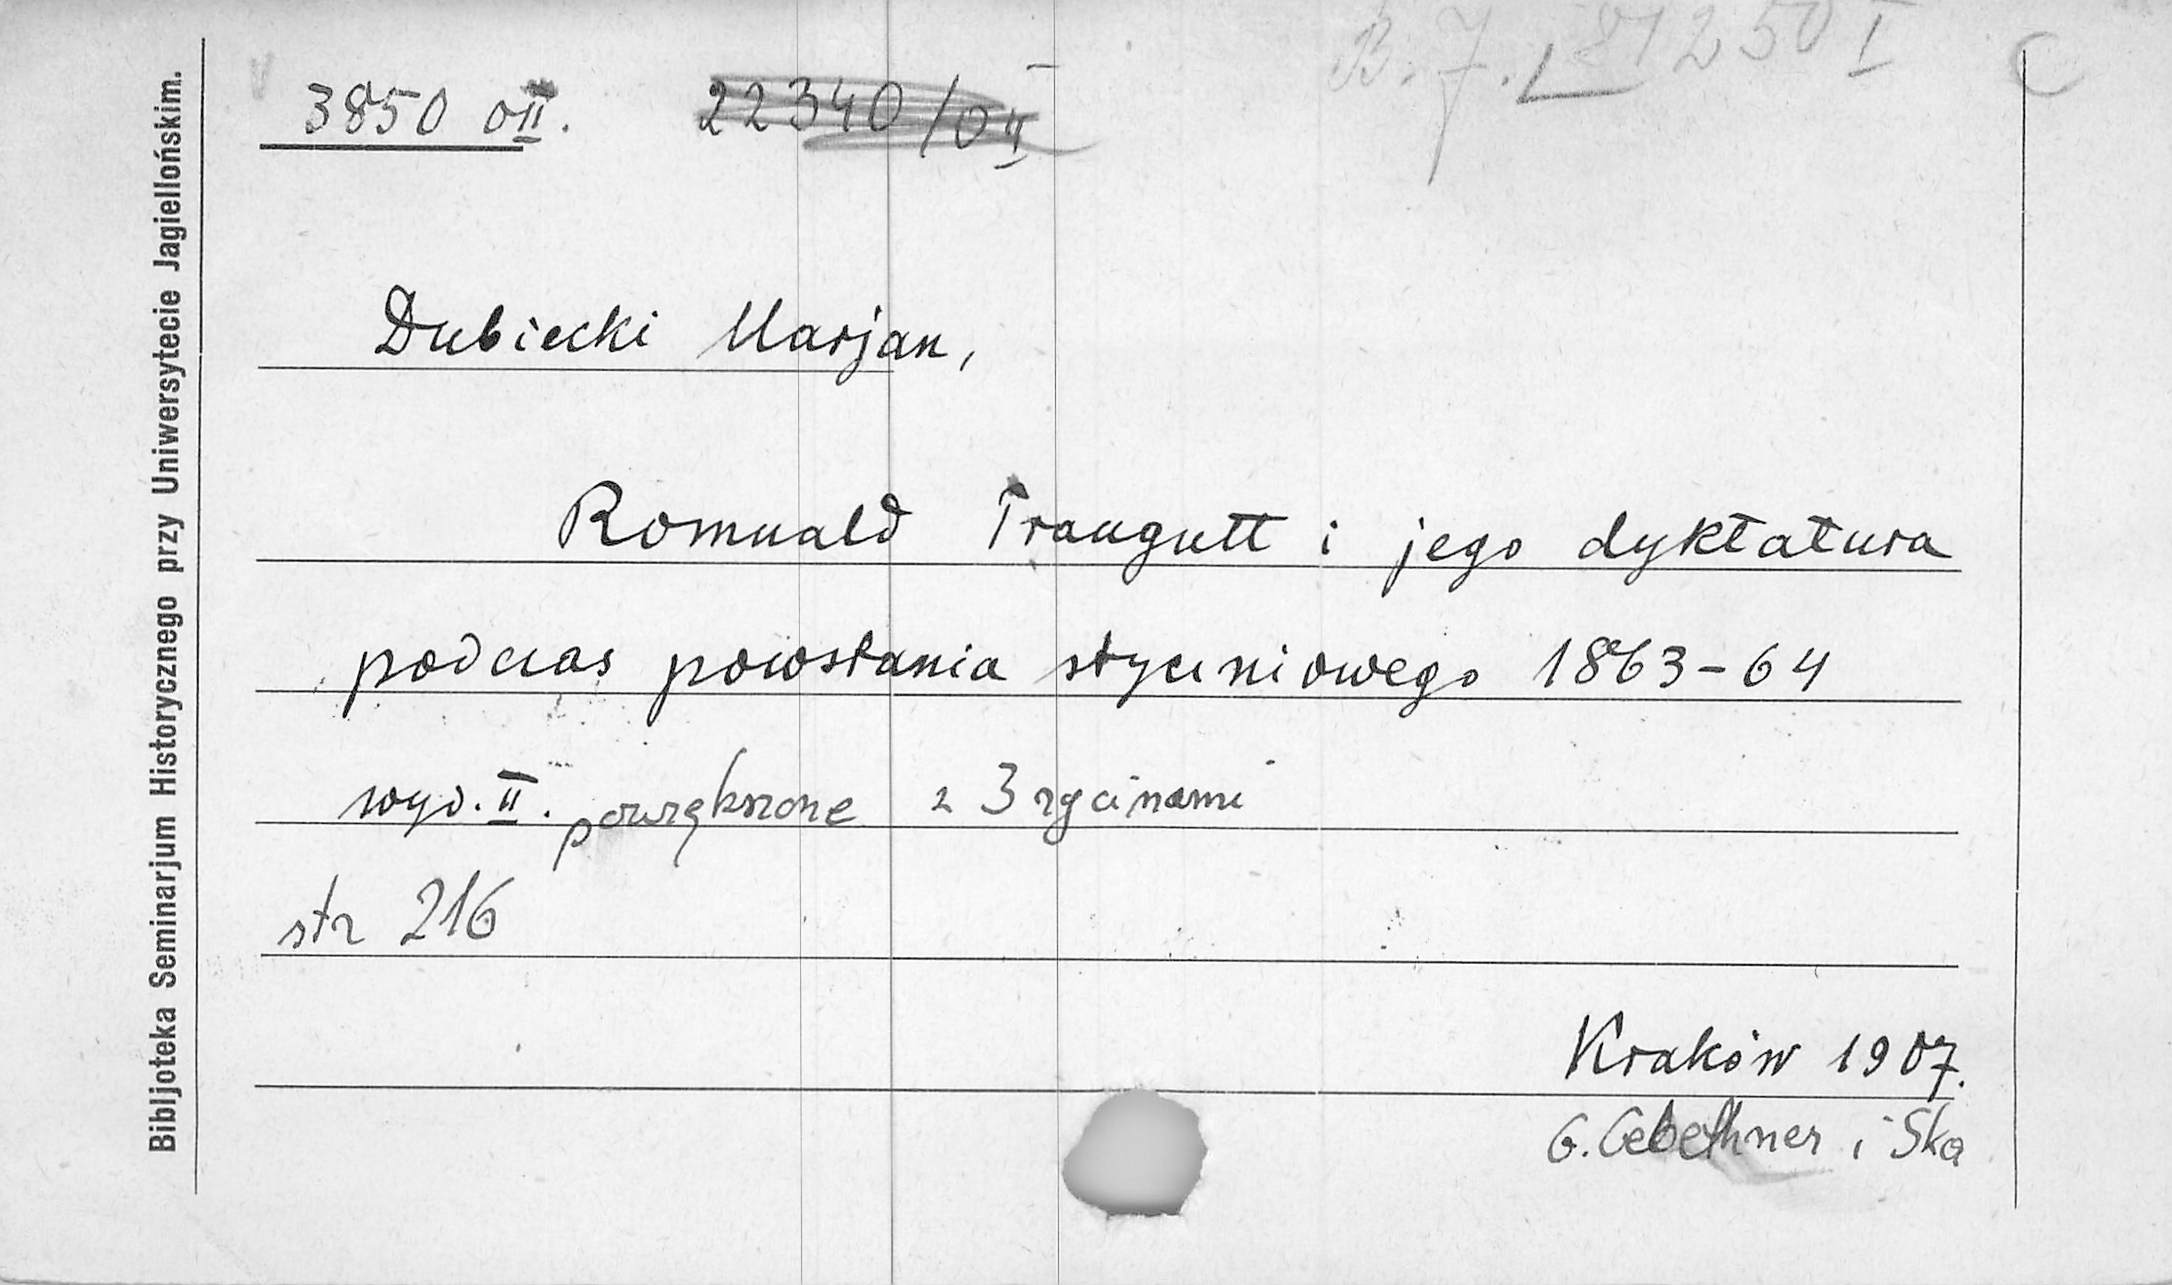 3850 oII. 22340/OII B.J. 81250 I C
Bibljoteka Seminarjum Historycznego przy Uniwersytecie Jagiellońskim.
Dubiecki Marjan,
Romuald Traugutt i jego dyktatura
podczas powstania styczniowego 1863-64
wyd. II. powiększone z 3 rycinami
str 216
Kraków 1907.
G. Gebethner i Ska